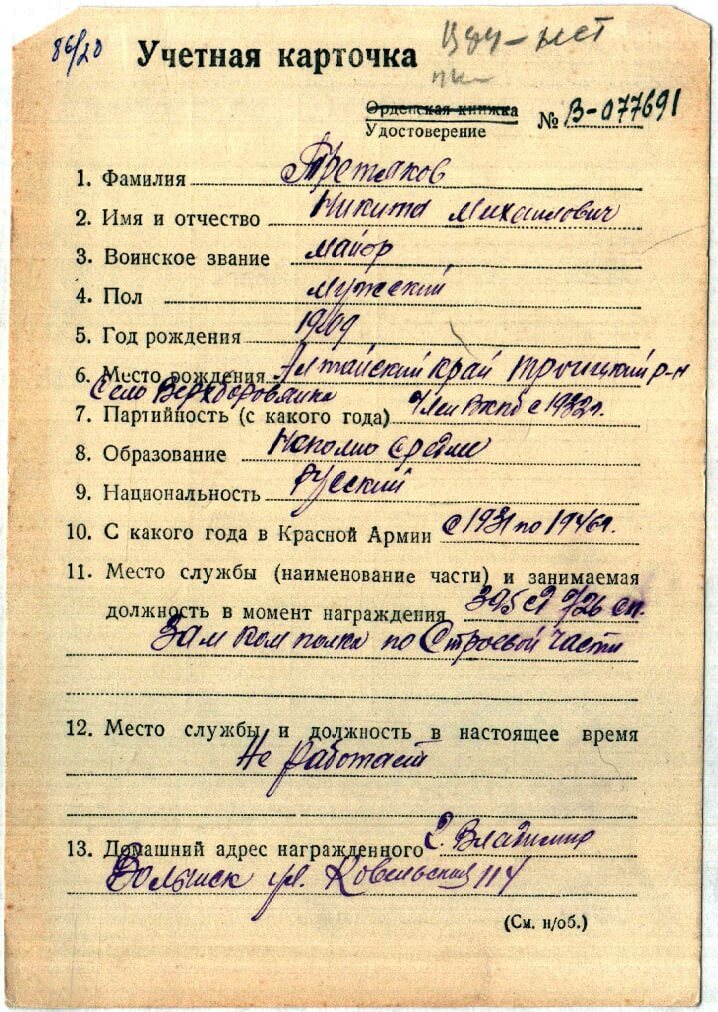 86/20
Учетная карточка
Орденская книжка
Удостоверение
№ В-077691
1. Фамилия Третяков
2. Имя и отчество Никита Михаилович
3. Воинское звание майор
4. Пол мужский
5. Год рождения 1909
6. Место рождения Алтайский край Троицкий р-н
Село
7. Партийность (с какого года) Член Вкпб с 1932г.
8. Образование средне
9. Национальность Русский
10. С какого года в Красной Армии с 1931 по 1946г.
11. Место службы (наименование части) и занимаемая
должность в момент награждения 395 сд 726 сп.
Зам ком полка по Строевой части
12. Место службы и должность в настоящее время
Не работает
13. Домашний адрес награжденного г. Владимир
Волынск ул. Ковельская 114
(См. н/об.)